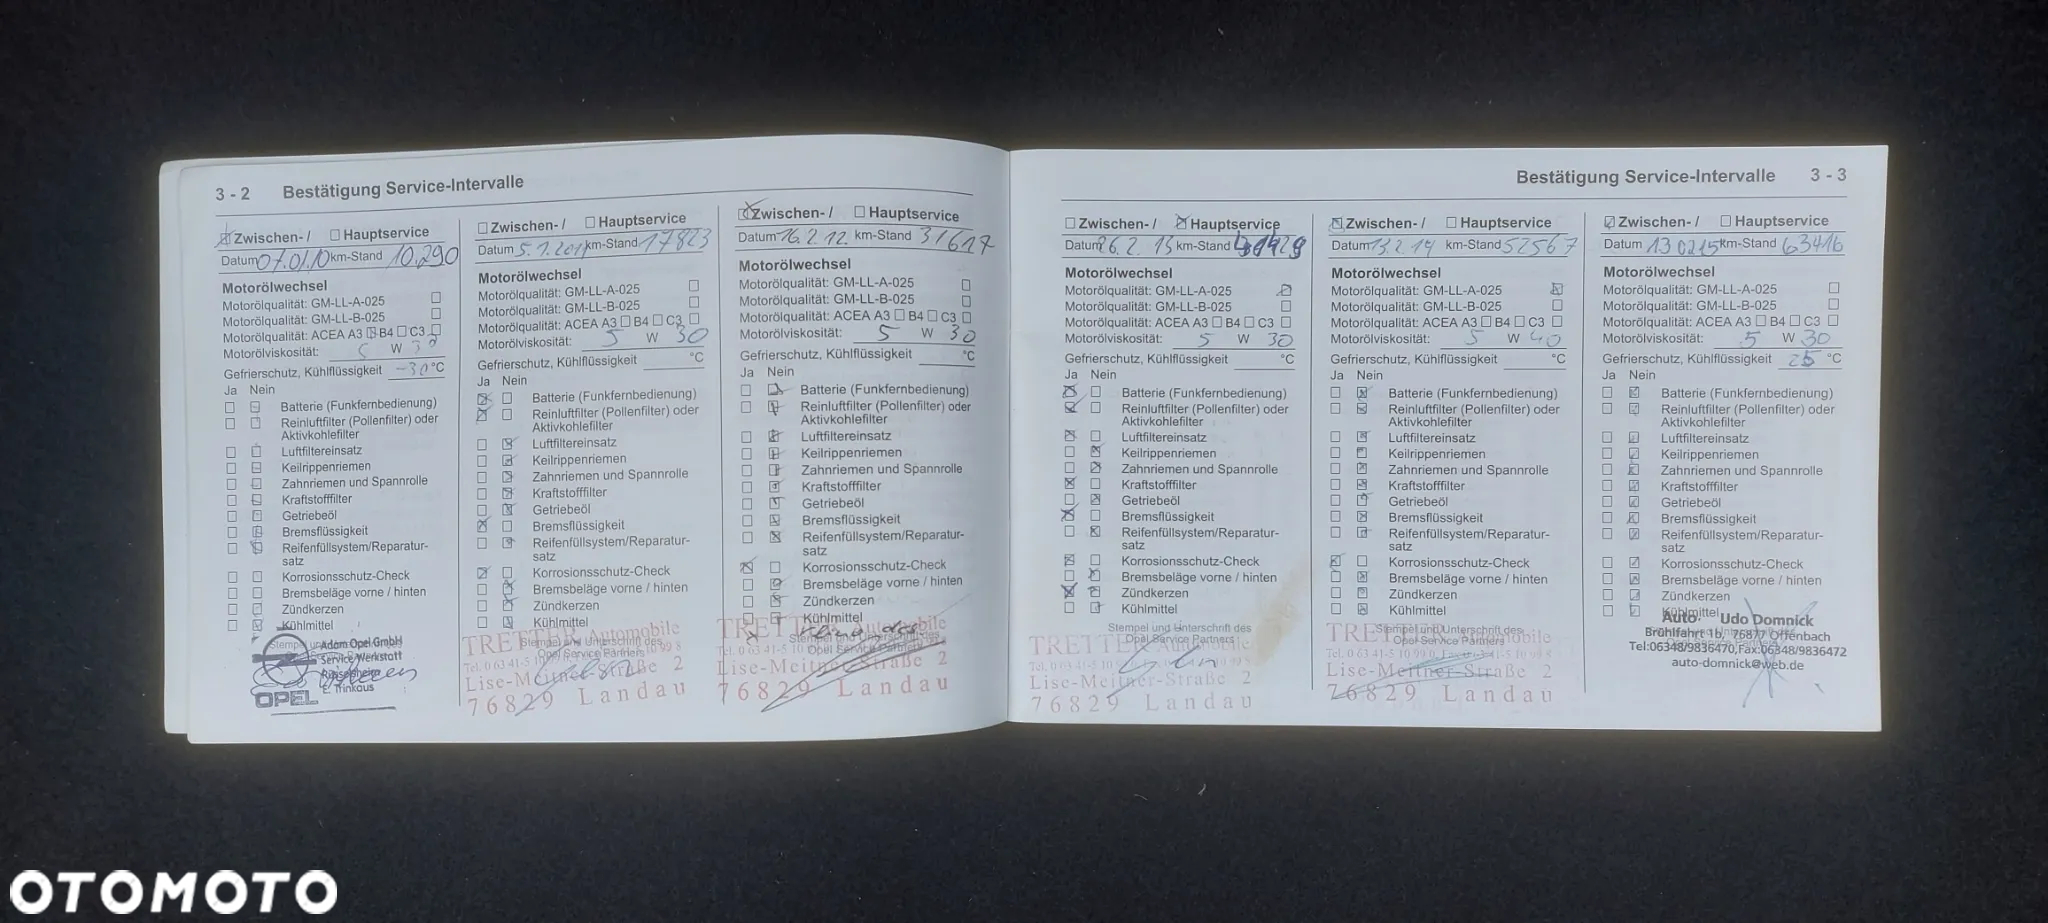 3 - 2 Bestätigung Service-Intervalle
Zwischen- / Hauptservice
Datum 07.01.10 km-Stand 10.290
Motorölwechsel
Motorölqualität: GM-LL-A-025
Motorölqualität: GM-LL-B-025
Motorölqualität: ACEA A3 B4 C3
Motorölviskosität: 5 W 30
Gefrierschutz, Kühlflüssigkeit -30 °C
Ja Nein
Batterie (Funkfernbedienung)
Reinluftfilter (Pollenfilter) oder
Aktivkohlefilter
Luftfiltereinsatz
Keilrippenriemen
Zahnriemen und Spannrolle
Kraftstofffilter
Getriebeöl
Bremsflüssigkeit
Reifenfüllsystem/Reparatur-
satz
Korrosionsschutz-Check
Bremsbeläge vorne / hinten
Zündkerzen
Kühlmittel
Adam Opel GmbH
Service Werkstatt
E. Trinkaus
OPEL
Zwischen- / Hauptservice
Datum 5.1.2011 km-Stand 17823
Motorölwechsel
Motorölqualität: GM-LL-A-025
Motorölqualität: GM-LL-B-025
Motorölqualität: ACEA A3 B4 C3
Motorölviskosität: 5 W 30
Gefrierschutz, Kühlflüssigkeit °C
Ja Nein
Batterie (Funkfernbedienung)
Reinluftfilter (Pollenfilter) oder
Aktivkohlefilter
Luftfiltereinsatz
Keilrippenriemen
Zahnriemen und Spannrolle
Kraftstofffilter
Getriebeöl
Bremsflüssigkeit
Reifenfüllsystem/Reparatur-
satz
Korrosionsschutz-Check
Bremsbeläge vorne / hinten
Zündkerzen
Kühlmittel
TRETTER Automobile
Stempel und Unterschrift des
Opel Service Partners
Lise-Meitner-Straße 2
76829 Landau
Zwischen- / Hauptservice
Datum 16.2.12. km-Stand 31617
Motorölwechsel
Motorölqualität: GM-LL-A-025
Motorölqualität: GM-LL-B-025
Motorölqualität: ACEA A3 B4 C3
Motorölviskosität: 5 W 30
Gefrierschutz, Kühlflüssigkeit °C
Ja Nein
Batterie (Funkfernbedienung)
Reinluftfilter (Pollenfilter) oder
Aktivkohlefilter
Luftfiltereinsatz
Keilrippenriemen
Zahnriemen und Spannrolle
Kraftstofffilter
Getriebeöl
Bremsflüssigkeit
Reifenfüllsystem/Reparatur-
satz
Korrosionsschutz-Check
Bremsbeläge vorne / hinten
Zündkerzen
Kühlmittel
TRETTER Automobile
Stempel und Unterschrift des
Opel Service Partners
Lise-Meitner-Straße 2
76829 Landau
Bestätigung Service-Intervalle 3 - 3
Zwischen- / Hauptservice
Datum 26.2.13 km-Stand
Motorölwechsel
Motorölqualität: GM-LL-A-025
Motorölqualität: GM-LL-B-025
Motorölqualität: ACEA A3 B4 C3
Motorölviskosität: 5 W 30
Gefrierschutz, Kühlflüssigkeit °C
Ja Nein
Batterie (Funkfernbedienung)
Reinluftfilter (Pollenfilter) oder
Aktivkohlefilter
Luftfiltereinsatz
Keilrippenriemen
Zahnriemen und Spannrolle
Kraftstofffilter
Getriebeöl
Bremsflüssigkeit
Reifenfüllsystem/Reparatur-
satz
Korrosionsschutz-Check
Bremsbeläge vorne / hinten
Zündkerzen
Kühlmittel
Stempel und Unterschrift des
TRETTER Automobile
Opel Service Partners
Lise-Meitner-Straße 2
76829 Landau
Zwischen- / Hauptservice
Datum 13.2.14 km-Stand 52567
Motorölwechsel
Motorölqualität: GM-LL-A-025
Motorölqualität: GM-LL-B-025
Motorölqualität: ACEA A3 B4 C3
Motorölviskosität: 5 W 40
Gefrierschutz, Kühlflüssigkeit °C
Ja Nein
Batterie (Funkfernbedienung)
Reinluftfilter (Pollenfilter) oder
Aktivkohlefilter
Luftfiltereinsatz
Keilrippenriemen
Zahnriemen und Spannrolle
Kraftstofffilter
Getriebeöl
Bremsflüssigkeit
Reifenfüllsystem/Reparatur-
satz
Korrosionsschutz-Check
Bremsbeläge vorne / hinten
Zündkerzen
Kühlmittel
TRETTER Automobile
Stempel und Unterschrift des
Opel Service Partners
Lise-Meitner-Straße 2
76829 Landau
Zwischen- / Hauptservice
Datum 13.02.15 km-Stand 63416
Motorölwechsel
Motorölqualität: GM-LL-A-025
Motorölqualität: GM-LL-B-025
Motorölqualität: ACEA A3 B4 C3
Motorölviskosität: 5 W 30
Gefrierschutz, Kühlflüssigkeit 25 °C
Ja Nein
Batterie (Funkfernbedienung)
Reinluftfilter (Pollenfilter) oder
Aktivkohlefilter
Luftfiltereinsatz
Keilrippenriemen
Zahnriemen und Spannrolle
Kraftstofffilter
Getriebeöl
Bremsflüssigkeit
Reifenfüllsystem/Reparatur-
satz
Korrosionsschutz-Check
Bremsbeläge vorne / hinten
Zündkerzen
Kühlmittel
Auto Udo Domnick
Brühlfahrt 1b, 76877 Offenbach
Tel:06348/9836470,Fax:06348/9836472
auto-domnick@web.de
OTOMOTO